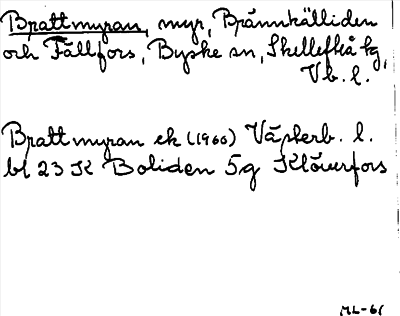 Brattmyran, myr, Brännkälliden
och Fällfors, Byske sn, Skellefteå tg,
Vb. l.
Brattmyran ek (1960) Västerb. l.
bl 23 K Boliden 5g Klöverfors
ML-61